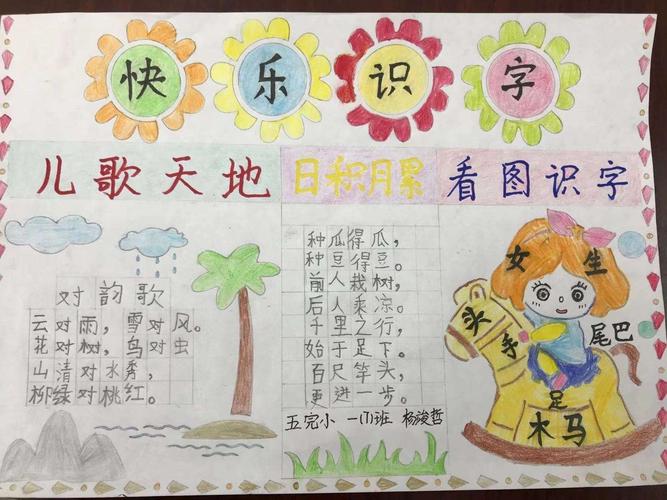 快乐识字
儿歌天地
日积月累
看图识字
对韵歌
云对雨，雪对风。
花对树，鸟对虫
山清对水秀，
柳绿对桃红。
种瓜得瓜，
种豆得豆。
前人栽树，
后人乘凉。
千里之行，
始于足下。
百尺竿头，
更进一步。
五完小 一(1)班 杨浚哲
女生
头
手
尾巴
足
木马